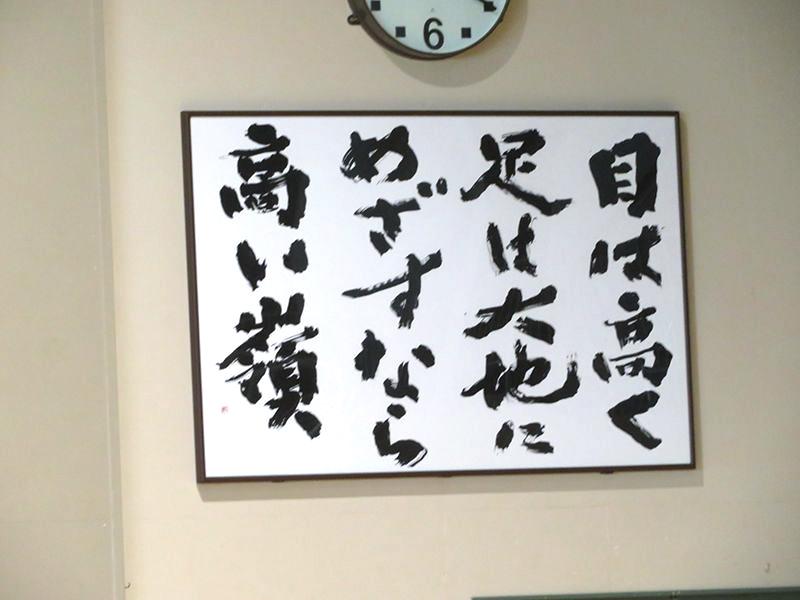 6
目は高く
足は大地に
めざすなら
高い嶺